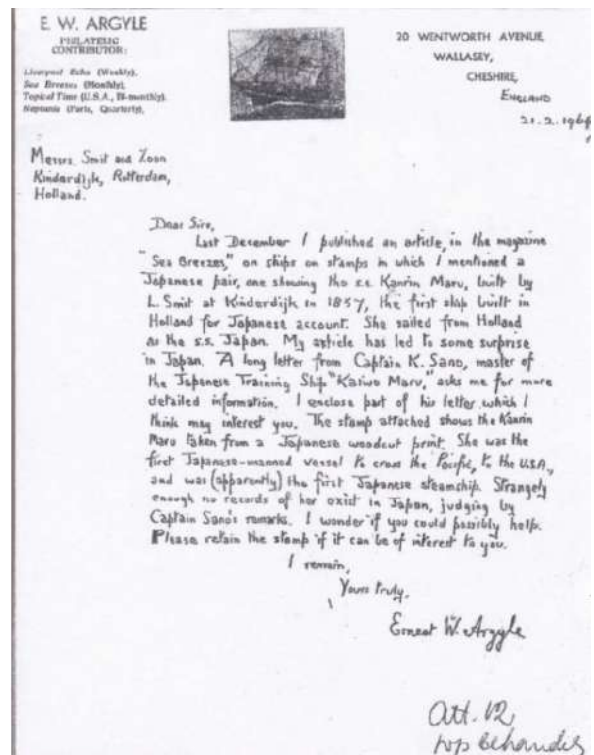 E. W. ARGYLE
PHILATELIC
CONTRIBUTOR:
Liverpool Echo (Weekly),
Sea Breezes (Monthly),
Topical Time (U.S.A., Bi-monthly),
Neptunia (Paris, Quarterly),
20 WENTWORTH AVENUE,
WALLASEY,
CHESHIRE,
ENGLAND
21.2.196
Messrs. Smit and Zoon
Kinderdijk, Rotterdam,
Holland.
Dear Sirs,
Last December I published an article, in the magazine
"Sea Breezes," on ships on stamps in which I mentioned a
Japanese pair, one showing the s.s. Kanrin Maru, built by
L. Smit at Kinderdijk in 1857, the first ship built in
Holland for Japanese account. She sailed from Holland
as the s.s. Japan. My article has led to some surprise
in Japan. A long letter from Captain K. Sano, master of
the Japanese Training Ship "Kaiwo Maru," asks me for more
detailed information. I enclose part of his letter which I
think may interest you. The stamp attached shows the Kanrin
Maru taken from a Japanese woodcut print. She was the
first Japanese-manned vessel to cross the Pacific, to the U.S.A.,
and was (apparently) the first Japanese steamship. Strangely
enough no records of her exist in Japan, judging by
Captain Sano's remarks. I wonder if you could possibly help.
Please retain the stamp if it can be of interest to you.
I remain,
Yours truly,
Ernest W. Argyle
Att. 12